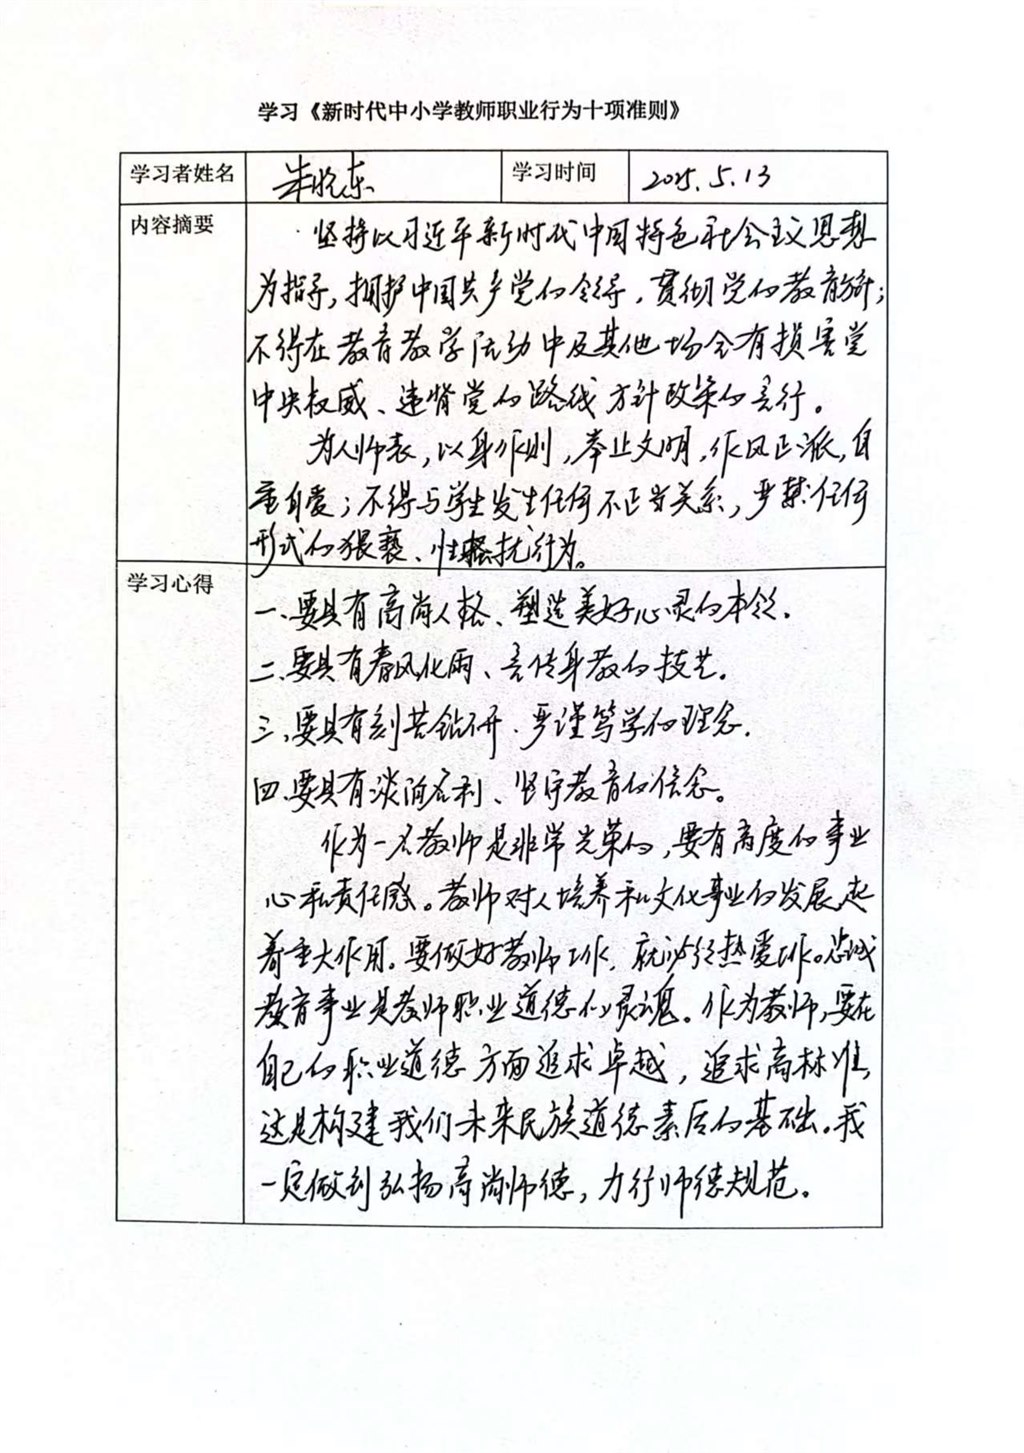 学习《新时代中小学教师职业行为十项准则》
学习者姓名 朱晓东 学习时间 2025.5.13
内容摘要
坚持以习近平新时代中国特色社会主义思想
为指导，拥护中国共产党的领导，贯彻党的教育方针；
不得在教育教学活动中及其他场合有损害党
中央权威、违背党的路线方针政策的言行。
为人师表，以身作则，举止文明，作风正派，自
重自爱；不得与学生发生任何不正当关系，严禁任何
形式的猥亵、性骚扰行为。
学习心得
一、要具有高尚人格、塑造美好心灵的本领.
二、要具有春风化雨、言传身教的技艺.
三、要具有刻苦钻研、严谨笃学的理念.
四、要具有淡泊名利、坚守教育的信念。
作为一名教师是非常光荣的，要有高度的事业
心和责任感。教师对人培养和文化事业的发展起
着重大作用。要做好教师工作，就必须热爱工作。忠诚
教育事业是教师职业道德的灵魂。作为教师，要在
自己的职业道德方面追求卓越，追求高标准，
这是构建我们未来民族道德素质的基础。我
一定做到弘扬高尚师德，力行师德规范。